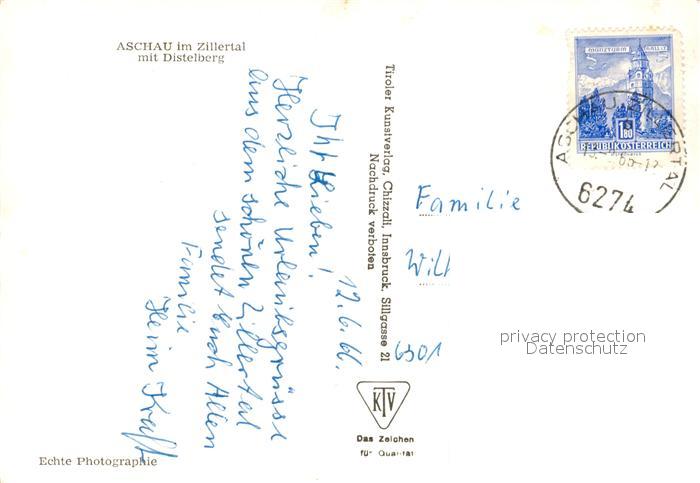 ASCHAU im Zillertal
mit Distelberg
12.6.66.
Ihr Lieben!
Herzliche Urlaubsgrüsse
aus dem schönen Zillertal
sendet Euch Allen
Familie
Heini Kraft
Echte Photographie
Tiroler Kunstverlag, Chizzali, Innsbruck, Sillgasse 21
Nachdruck verboten
KTV
Das Zeichen
für Qualität
MÜNZTURM HALL I.T.
S
1.80
REPUBLIK ÖSTERREICH
ASCHAU, ZILLERTAL
6274
Familie
Wilh
6301
privacy protection
Datenschutz